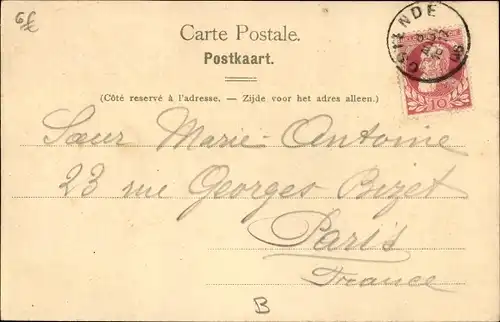 Carte Postale.
Postkaart.
(Côté reservé à l'adresse. — Zijde voor het adres alleen.)
OSTENDE
10
Sœur Marie-Antoine
23 rue Georges Bizet
Paris
France
B